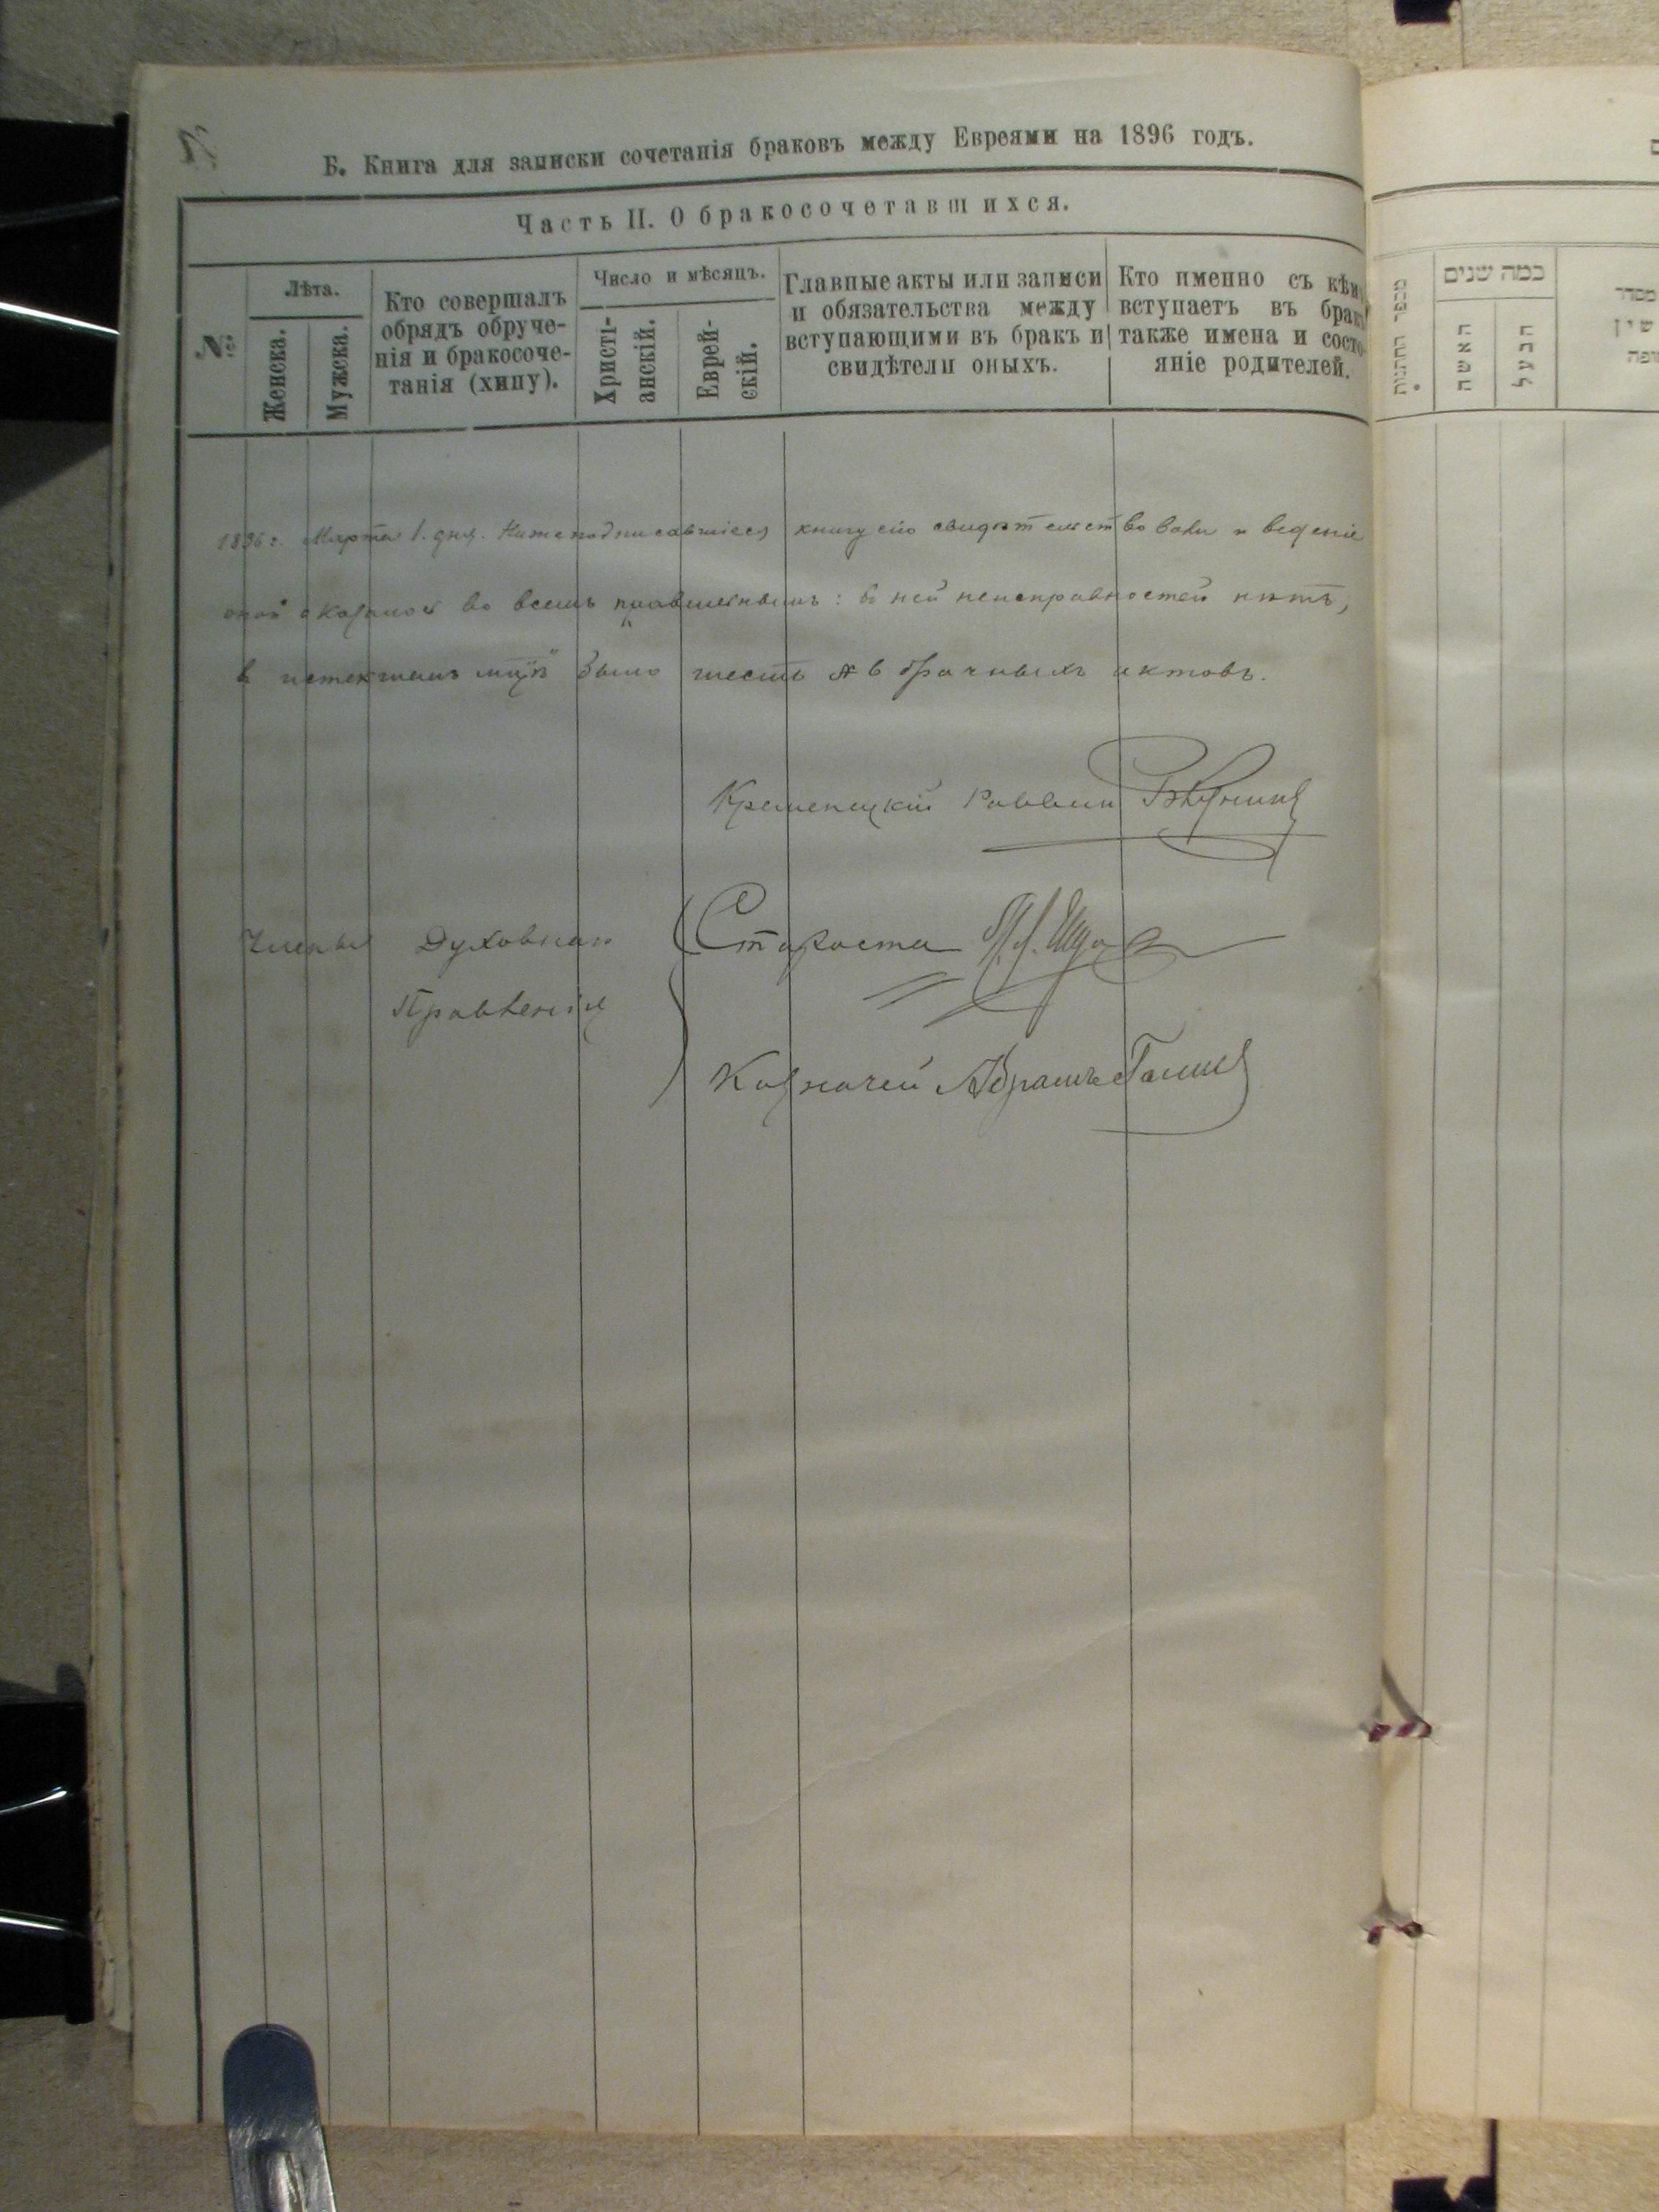 Б. Книга для записки сочетанія браковъ между Евреями на 1896 годъ.
Часть II. О бракосочетавшихся.
№
Лѣта.
Женска.
Мужска.
Кто совершалъ
обрядъ обруче-
нія и бракосоче-
танія (хипу).
Число и мѣсяцъ.
Христі-
анскій.
Еврей-
скій.
Главные акты или записи
и обязательства между
вступающими въ бракъ и
свидѣтели оныхъ.
Кто именно съ кѣмъ
вступаетъ въ бракъ
также имена и состо-
яніе родителей.
1896 г. Марта 1. дня. Нижеподписавшіеся книгу сію свидѣтельствовали и веденіе
оной оказалось во всемъ правильнымъ: въ ней неисправностей нѣтъ,
в истекшемъ мцѣ было шесть 6 брачныхъ актовъ.
Кременецкій Раввин
Члены Духовнаго
Правленія
Староста
Казначей Абрамъ
מספר החתונות
כמה שנים
האשה
הבעל
מסדר